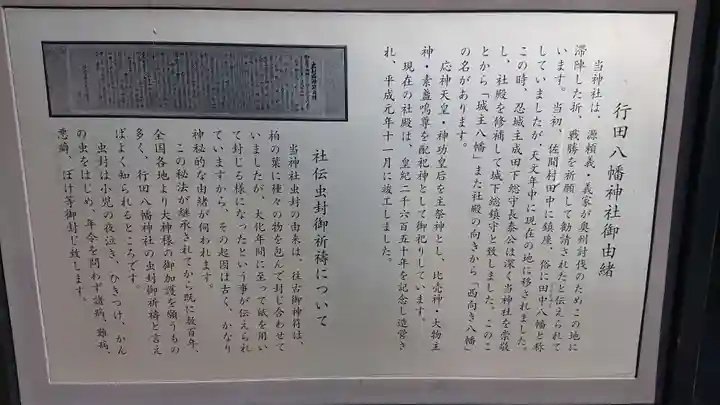 行田八幡神社御由緒
当神社は、源頼義・義家が奥州討伐のためこの地に
滞陣した折、戦勝を祈願して勧請されたと伝えられて
います。当初、佐間村田中に鎮座、俗に田中八幡と称
していましたが天文年中に現在の地に移されました。
この時、忍城主成田下総守長泰公は深く当神社を崇敬
し、社殿を修補して城下総鎮守と致しました。このこ
とから「城主八幡」また社殿の向きから「西向き八幡」
の名があります。
応神天皇・神功皇后を主祭神とし、比売神・大物主
神・素盞嗚尊を配祀神として御祀りしています。
現在の社殿は、皇紀二千六百五十年を記念し造営さ
れ、平成元年十一月に竣工しました。
社伝虫封御祈祷について
当神社虫封の由来は、往古御神符は、
柏の葉に種々の物を包んで封じ合わせて
いましたが、大化年間に至って紙を用い
て封じる様になったという事が伝えられ
ていますから、その起因は古く、かなり
神秘的な由緒が伺われます。
この秘法が継承されてから既に数百年、
全国各地より大神様の御加護を願うもの
多く、行田八幡神社の虫封御祈祷と言え
ばよく知られるところです。
虫封は小児の夜泣き、ひきつけ、かん
の虫をはじめ、年令を問わず諸病、難病、
悪癖、ぼけ等御封じ致します。